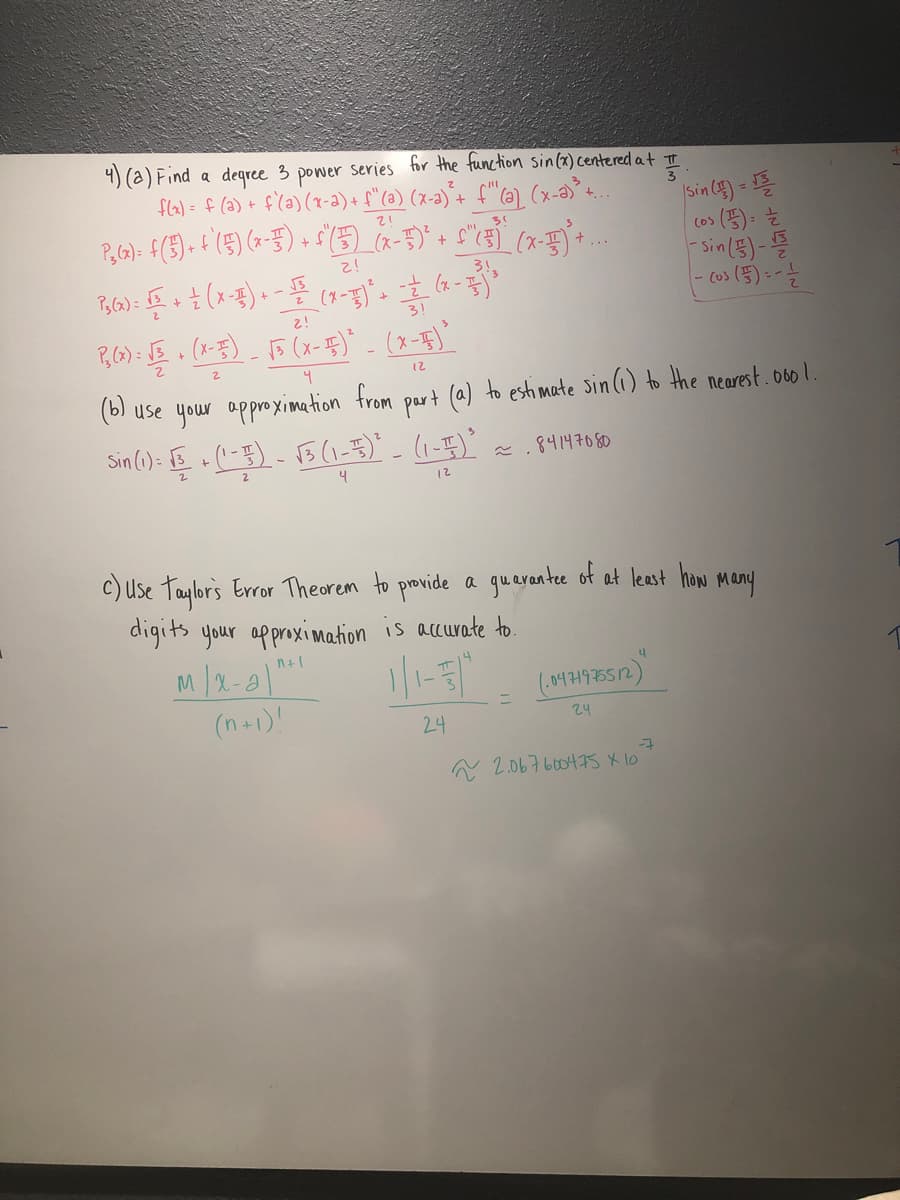 4) (a) Find a degree 3 power series for the function sin(x) centered at π/3.
f(x) = f(a) + f'(a)(x-a) + f"(a)/2! (x-a)² + f'''(a)/3! (x-a)³ + ...
P₃(x) = f(π/3) + f'(π/3)(x-π/3) + f"(π/3)/2! (x-π/3)² + f'''(π/3)/3! (x-π/3)³ + ...
P₃(x) = √3/2 + 1/2 (x-π/3) + -√3/2 /2! (x-π/3)² + -1/2 /3! (x-π/3)³
P₃(x) = √3/2 + (x-π/3)/2 - √3(x-π/3)²/4 - (x-π/3)³/12
sin(π/3) = √3/2
cos(π/3) = 1/2
-sin(π/3) - √3/2
-cos(π/3) = -1/2
(b) use your approximation from part (a) to estimate sin(1) to the nearest .0001.
sin(1) = √3/2 + (1-π/3)/2 - √3(1-π/3)²/4 - (1-π/3)³/12 ≈ .84147080
c) Use Taylor's Error Theorem to provide a guarantee of at least how many
digits your approximation is accurate to.
M|x-a|ⁿ⁺¹/(n+1)! 1|1-π/3|⁴/24 = (.0471975512)⁴/24
≈ 2.067600475 x 10⁻⁷